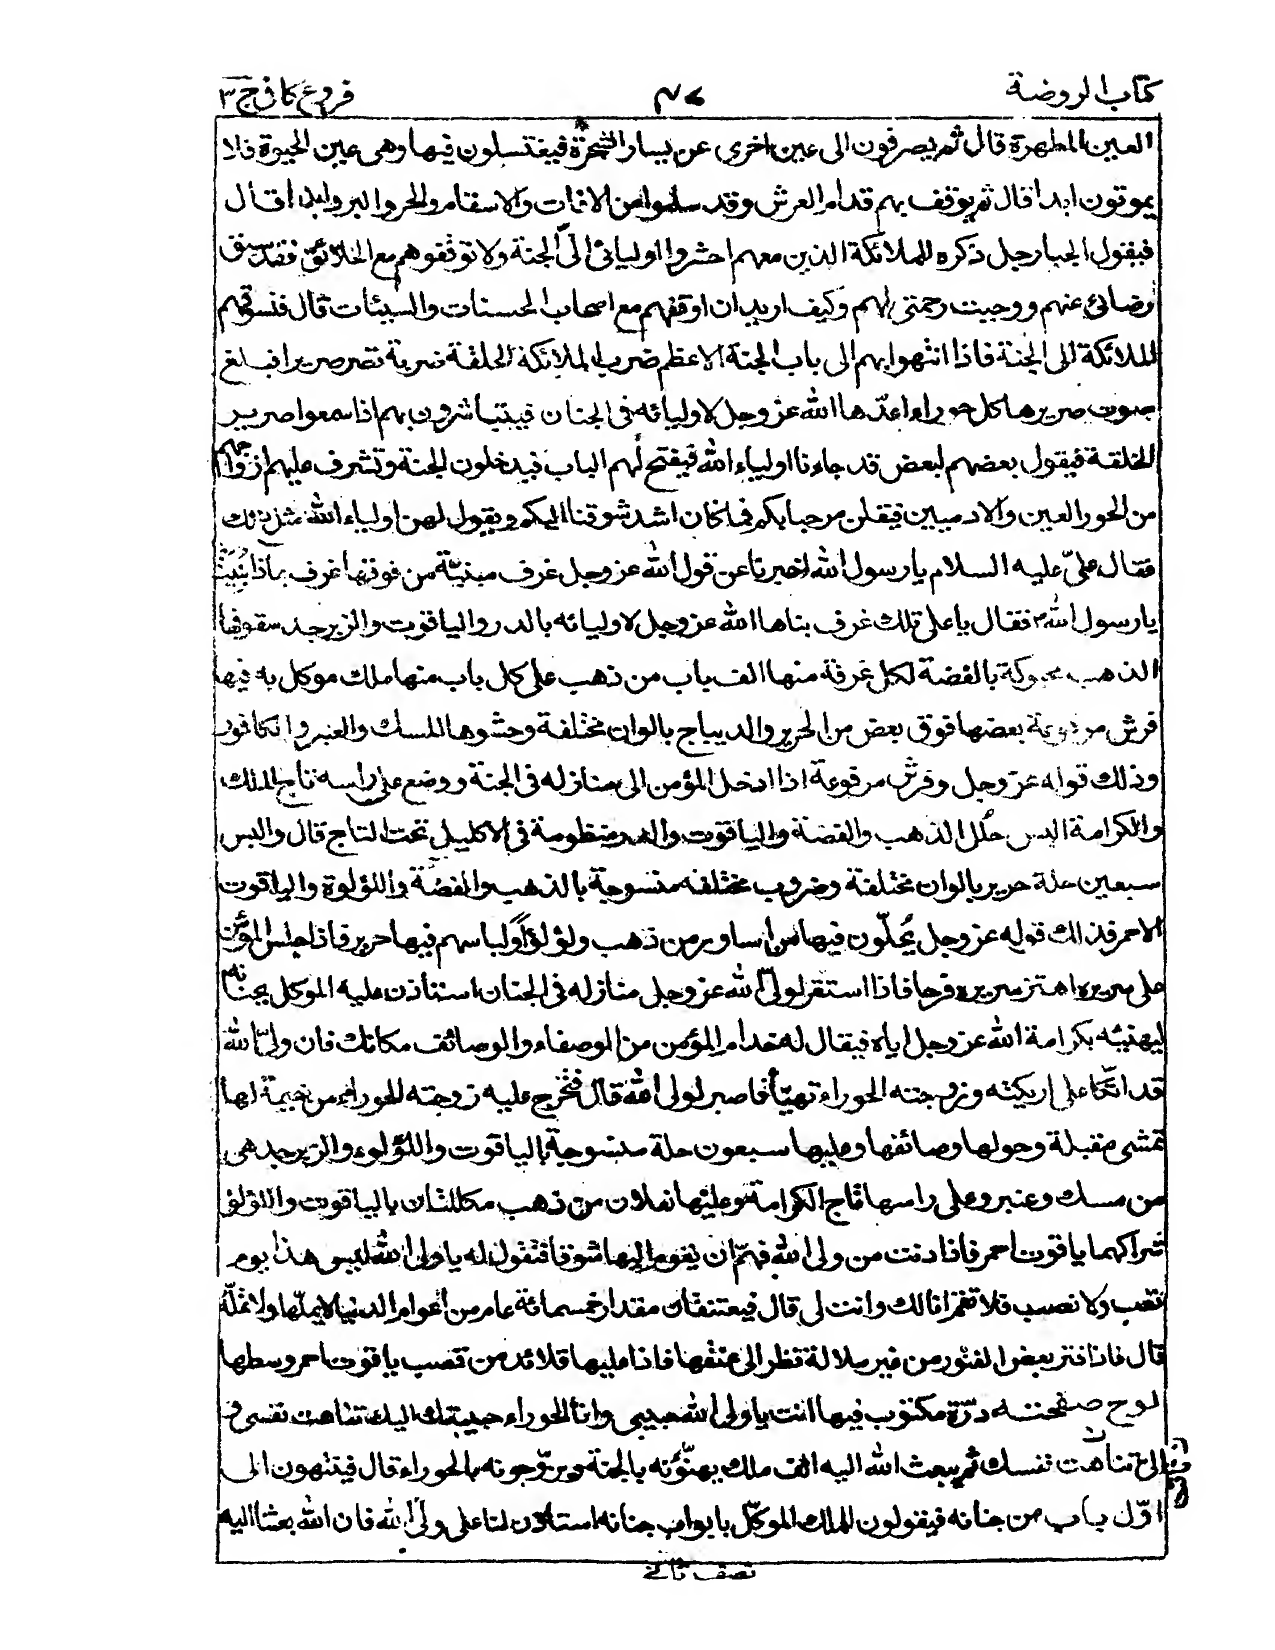 كتاب الروضة
٤٧
فروع كافي ج ٣
العين المطهرة قال ثم يصرفون الى عين اخرى عن يسار الشجرة فيغتسلون فيها وهى عين الحيوة فلا
يموتون ابدا قال ثم يوقف بهم قدام العرش وقد سلموا من الافات والاسقام والحر والبرد ابدا قال
فيقول الجبار جل ذكره للملائكة الذين معهم احشروا اوليائى الى الجنة ولا توقفوهم مع الخلائق فقد سبق
رضائى عنهم ووجبت رحمتى لهم وكيف اريد ان اوقفهم مع اصحاب الحسنات والسيئات قال فتسوقهم
الملائكة الى الجنة فاذا انتهوا بهم الى باب الجنة الاعظم ضرب الملائكة الحلقة ضربة تصر صريرا فيبلغ
صوت صريرها كل حوراء اعدّها الله عز وجل لاوليائه فى الجنان فيتباشرون بهم اذا سمعوا صرير
الحلقة فيقول بعضهم لبعض قد جاءنا اولياء الله فيفتح لهم الباب فيدخلون الجنة وتشرف عليهم ازواجهم
من الحور العين والادميين فيقلن مرحبا بكم فما كان اشد شوقنا اليكم ويقول لهن اولياء الله مثل ذلك
فقال علىّ عليه السلام يا رسول الله اخبرنا عن قول الله عز وجل غرف مبنيّة من فوقها غرف بماذا بُنِيَتْ
يا رسول الله فقال يا على تلك غرف بناها الله عز وجل لاوليائه بالدر والياقوت والزبرجد سقوفها
الذهب محبوكة بالفضة لكل غرفة منها الف باب من ذهب على كل باب منها ملك موكل به فيها
فرش مرفوعة بعضها فوق بعض من الحرير والديباج بالوان مختلفة وحشوها المسك والعنبر والكافور
وذلك قوله عز وجل وفرش مرفوعة اذا ادخل المؤمن الى منازله فى الجنة ووضع على راسه تاج الملك
والكرامة البس حلل الذهب والفضة والياقوت والدر منظومة فى الاكليل تحت التاج قال والبس
سبعين حلة حرير بالوان مختلفة وضروب مختلفه منسوجة بالذهب والفضّة واللؤلؤة والياقوت
الاحمر فذلك قوله عز وجل يُحلّون فيها من اساور من ذهب ولؤلؤاً ولباسهم فيها حرير فاذا جلس المؤمن
على سريره اهتز سريره فرحا فاذا استقر لولىّ الله عز وجل منازله فى الجنان استاذن عليه الموكل بجنانه
ليهنيّه بكرامة الله عز وجل اياه فيقال له خدام المؤمن من الوصفاء والوصائف مكانك فان ولىّ الله
قد اتكأ على اريكته وزوجته الحوراء تهيّأ فاصبر لولى الله قال فتخرج عليه زوجته الحوراء من خيمة لها
تمشى مقبلة وحولها وصائفها وعليها سبعون حلة منسوجة بالياقوت واللؤلوء والزبرجد هى
من مسك وعنبر وعلى راسها تاج الكرامة وعليها نعلان من ذهب مكللتان بالياقوت واللؤلؤ
شراكهما ياقوت احمر فاذا دنت من ولى الله فهمّ ان يقوم اليها شوقا فتقول له يا ولى الله ليس هذا يوم
تعب ولا نصب فلا تقم انا لك وانت لى قال فيعتنقان مقدار خمسمائة عام من اعوام الدنيا لا يملّها ولا تملّه
قال فاذا فتر بعض الفتور من غير ملالة نظر الى عنقها فاذا عليها قلائد من قصب ياقوت احمر وسطها
لوح صفحته درّة مكتوب فيها انت يا ولى الله حبيبى وانا الحوراء حبيبتك اليك تناهت نفسى و
الىّ تناهت نفسك ثم يبعث الله اليه الف ملك يهنّؤنه بالجنة ويزوّجونه بالحوراء قال فينتهون الى
اوّل باب من جنانه فيقولون للملك الموكّل بابواب جنانه استاذن لنا على ولىّ الله فان الله بعثنا اليه
نصف ثانى